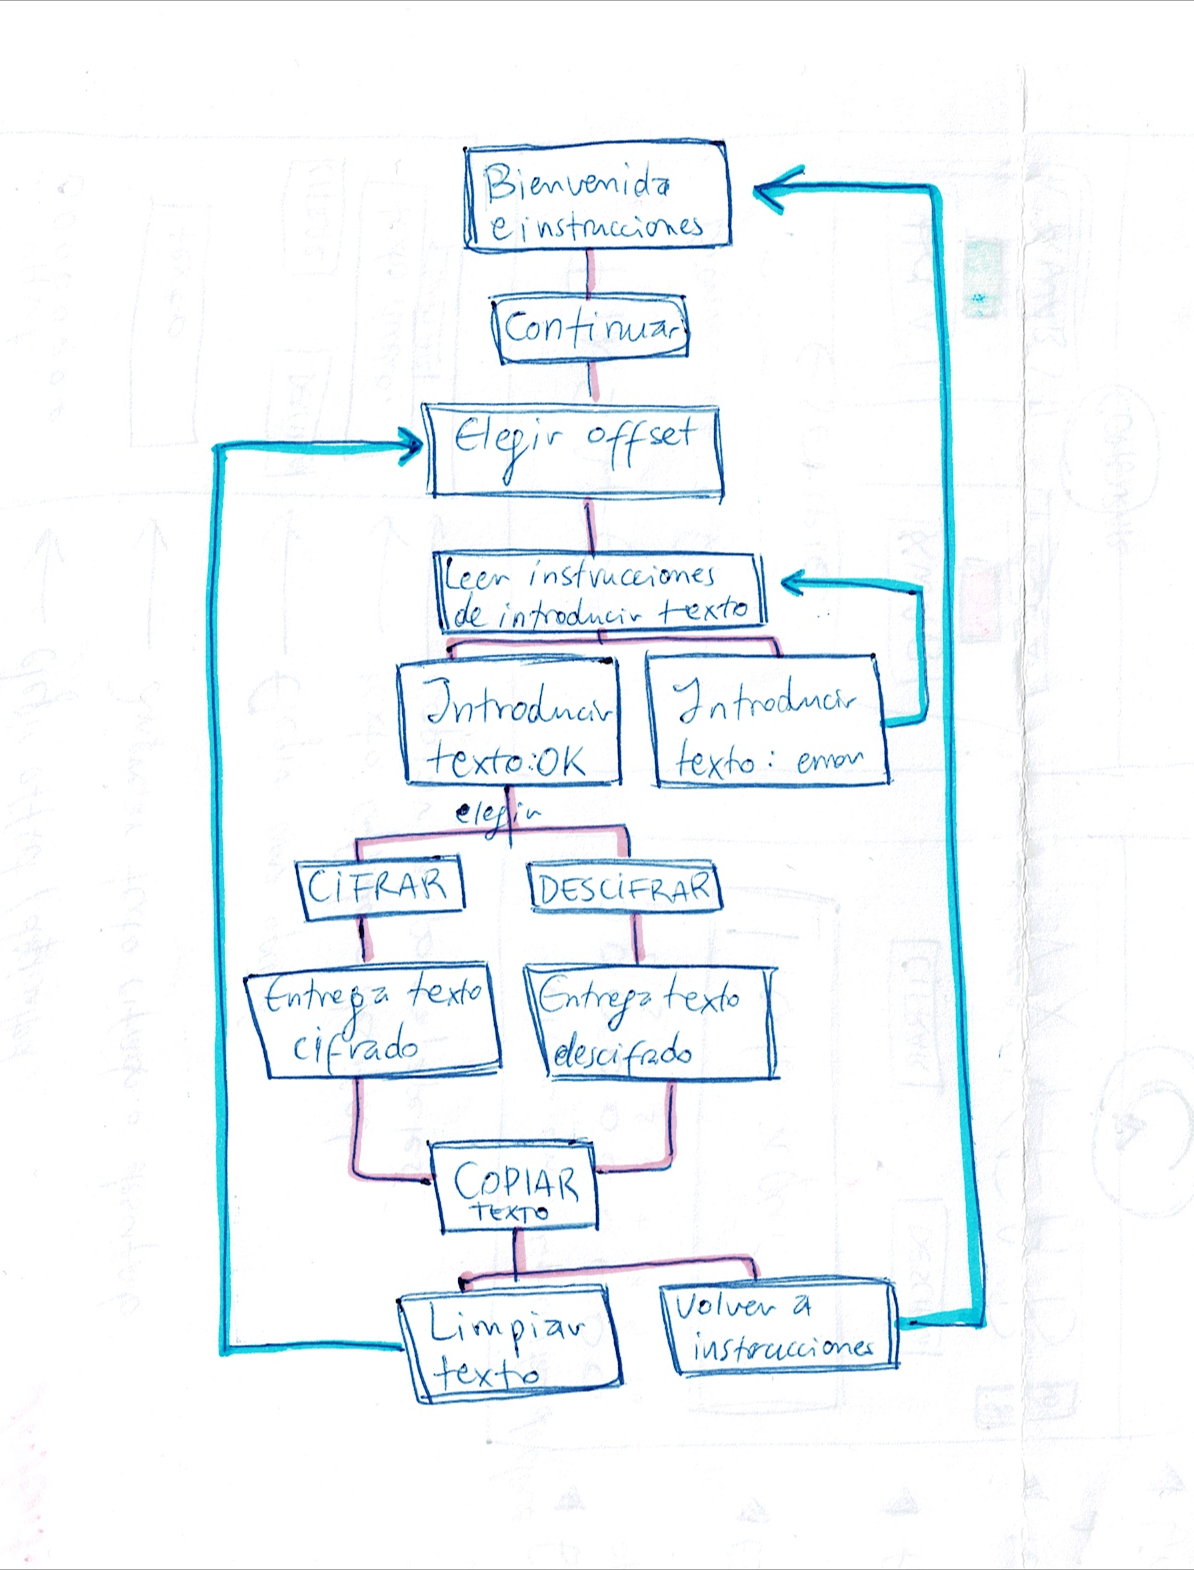 Bienvenida
e instrucciones
Continuar
Elegir offset
Leer instrucciones
de introducir texto
Introducir
texto: OK
Introducir
texto: error
elegir
CIFRAR
DESCIFRAR
Entrega texto
cifrado
Entrega texto
descifrado
COPIAR
TEXTO
Limpiar
texto
Volver a
instrucciones